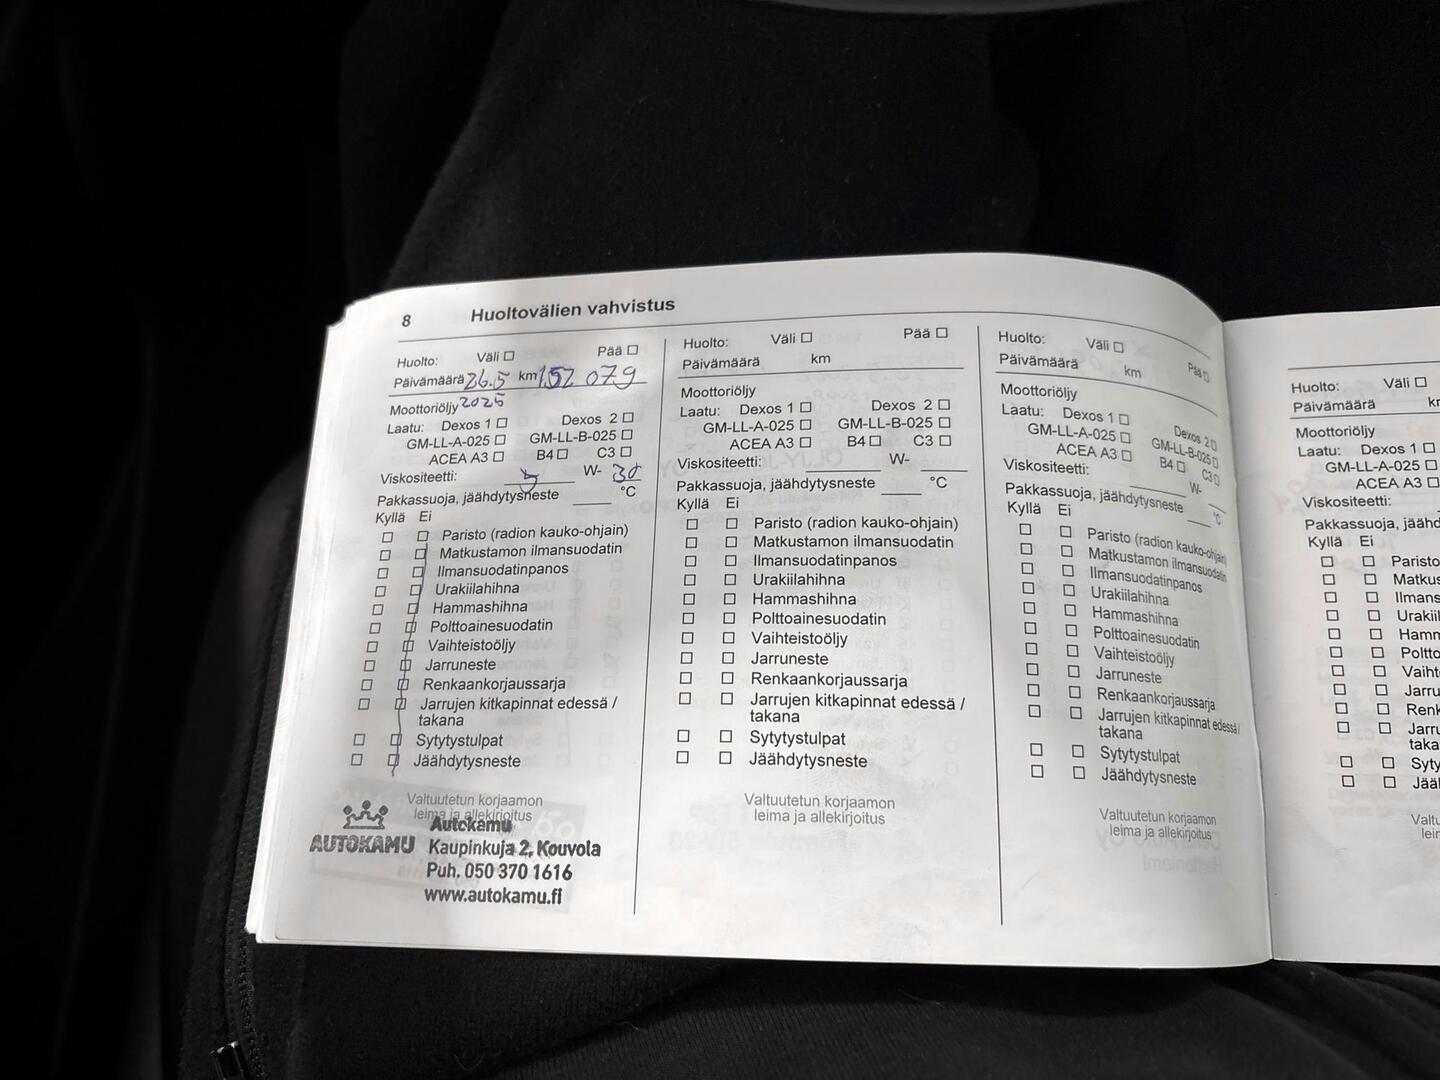 8 Huoltovälien vahvistus
Huolto: Väli ☐ Pää ☐
Päivämäärä 26.5 km 152 079
Moottoriöljy 2025
Laatu: Dexos 1 ☐ Dexos 2 ☐
GM-LL-A-025 ☐ GM-LL-B-025 ☐
ACEA A3 ☐ B4 ☐ C3 ☐
Viskositeetti: 5 W- 30
Pakkassuoja, jäähdytysneste ____ °C
Kyllä Ei
☐ ☐ Paristo (radion kauko-ohjain)
☐ ☐ Matkustamon ilmansuodatin
☐ ☐ Ilmansuodatinpanos
☐ ☐ Urakiilahihna
☐ ☐ Hammashihna
☐ ☐ Polttoainesuodatin
☐ ☐ Vaihteistoöljy
☐ ☐ Jarruneste
☐ ☐ Renkaankorjaussarja
☐ ☐ Jarrujen kitkapinnat edessä /
takana
☐ ☐ Sytytystulpat
☐ ☐ Jäähdytysneste
Valtuutetun korjaamon
leima ja allekirjoitus
AUTOKAMU
Autokamu
Kaupinkuja 2, Kouvola
Puh. 050 370 1616
www.autokamu.fi
Huolto: Väli ☐ Pää ☐
Päivämäärä km
Moottoriöljy
Laatu: Dexos 1 ☐ Dexos 2 ☐
GM-LL-A-025 ☐ GM-LL-B-025 ☐
ACEA A3 ☐ B4 ☐ C3 ☐
Viskositeetti: ____ W- ____
Pakkassuoja, jäähdytysneste ____ °C
Kyllä Ei
☐ ☐ Paristo (radion kauko-ohjain)
☐ ☐ Matkustamon ilmansuodatin
☐ ☐ Ilmansuodatinpanos
☐ ☐ Urakiilahihna
☐ ☐ Hammashihna
☐ ☐ Polttoainesuodatin
☐ ☐ Vaihteistoöljy
☐ ☐ Jarruneste
☐ ☐ Renkaankorjaussarja
☐ ☐ Jarrujen kitkapinnat edessä /
takana
☐ ☐ Sytytystulpat
☐ ☐ Jäähdytysneste
Valtuutetun korjaamon
leima ja allekirjoitus
Huolto: Väli ☐ Pää ☐
Päivämäärä km
Moottoriöljy
Laatu: Dexos 1 ☐ Dexos 2 ☐
GM-LL-A-025 ☐ GM-LL-B-025 ☐
ACEA A3 ☐ B4 ☐ C3 ☐
Viskositeetti: ____ W- ____
Pakkassuoja, jäähdytysneste ____ °C
Kyllä Ei
☐ ☐ Paristo (radion kauko-ohjain)
☐ ☐ Matkustamon ilmansuodatin
☐ ☐ Ilmansuodatinpanos
☐ ☐ Urakiilahihna
☐ ☐ Hammashihna
☐ ☐ Polttoainesuodatin
☐ ☐ Vaihteistoöljy
☐ ☐ Jarruneste
☐ ☐ Renkaankorjaussarja
☐ ☐ Jarrujen kitkapinnat edessä /
takana
☐ ☐ Sytytystulpat
☐ ☐ Jäähdytysneste
Valtuutetun korjaamon
leima ja allekirjoitus
Huolto: Väli ☐
Päivämäärä
Moottoriöljy
Laatu: Dexos 1 ☐
GM-LL-A-025 ☐
ACEA A3 ☐
Viskositeetti:
Pakkassuoja, jäähd
Kyllä Ei
☐ ☐ Paristo
☐ ☐ Matkus
☐ ☐ Ilmans
☐ ☐ Urakiil
☐ ☐ Hamm
☐ ☐ Poltto
☐ ☐ Vaiht
☐ ☐ Jarru
☐ ☐ Renk
☐ ☐ Jarru
taka
☐ ☐ Syty
☐ ☐ Jääl